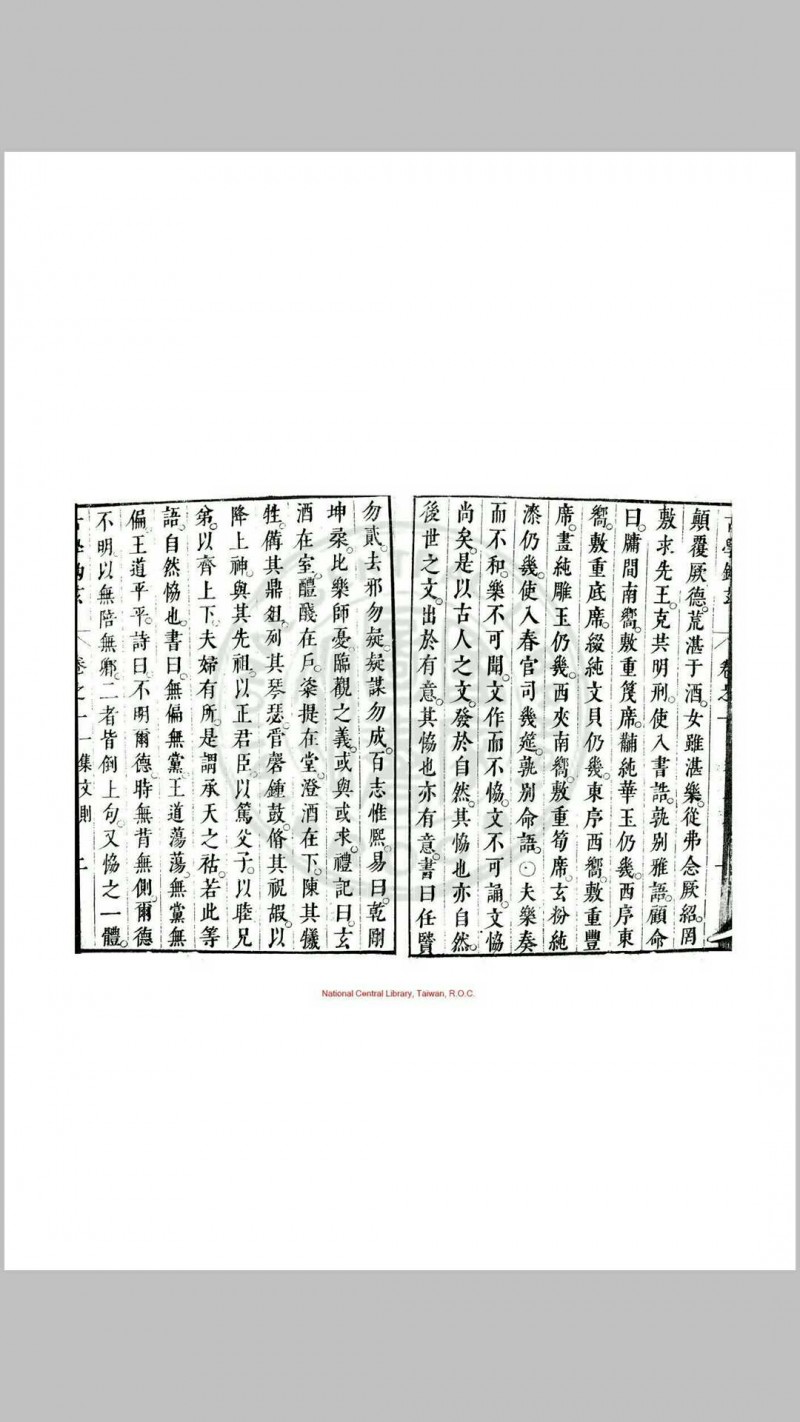 顛覆厥德荒湛于酒女雖湛樂從弗念厥紹罔
敷求先王克共明刑使入書誥孰别雅語顧命
曰牖間南嚮敷重篾席黼純華玉仍幾西序東
嚮敷重底席綴純文貝仍幾東序西嚮敷重豐
席畫純雕玉仍幾西夾南嚮敷重筍席玄粉純
漆仍幾使入春官司幾筵孰别命語〇夫樂奏
而不和樂不可聞文作而不恊文不可誦文恊
尚矣是以古人之文發於自然其恊也亦自然
後世之文出於有意其恊也亦有意書曰任賢
勿貳去邪勿疑疑謀勿成百志惟熈易曰乾剛
坤柔比樂師憂臨觀之義或與或求禮記曰玄
酒在室醴醆在戶粢提在堂澄酒在下陳其犧
牲備其鼎俎列其琴瑟管磬鍾鼓脩其祝嘏以
降上神與其先祖以正君臣以篤父子以睦兄
弟以齊上下夫婦有所是謂承天之祜若此等
語自然恊也書曰無偏無黨王道蕩蕩無黨無
偏王道平平詩曰不明爾德時無背無側爾德
不明以無陪無卿二者皆倒上句又恊之一體
卷之十一集文則 二
National Central Library, Taiwan, R.O.C.